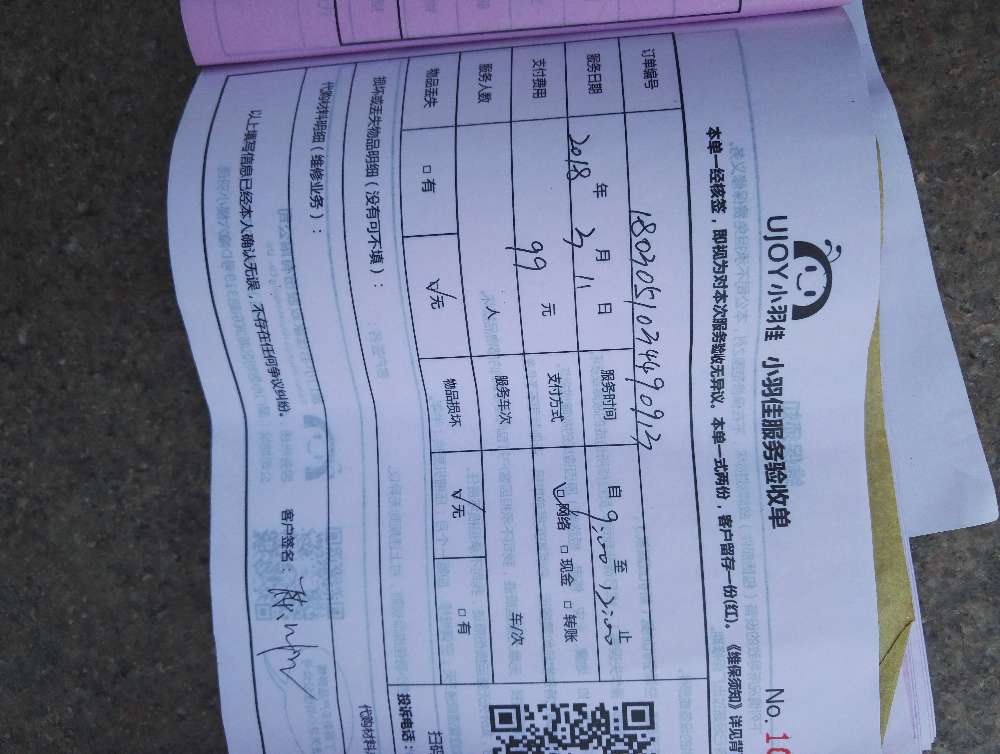 UJOY小羽佳 小羽佳服务验收单
No.10
本单一经核签，即视为对本次服务验收无异议。本单一式两份，客户留存一份(红)。《维保须知》详见背
订单编号 1803051034490913
服务日期 2018 年 3 月 11 日 服务时间 自 9:00 至 12:00 止
支付费用 99 元 支付方式 ☑网络 □现金 □转账
服务人数 人 服务车次 车/次
物品丢失 □有 ☑无 物品损坏 ☑无 □有
损坏或丢失物品明细（没有可不填）：
投诉电话：
扫码
代购材料明细（维修业务）：
代购材料
以上填写信息已经本人确认无误，不存在任何争议纠纷。
客户签名：